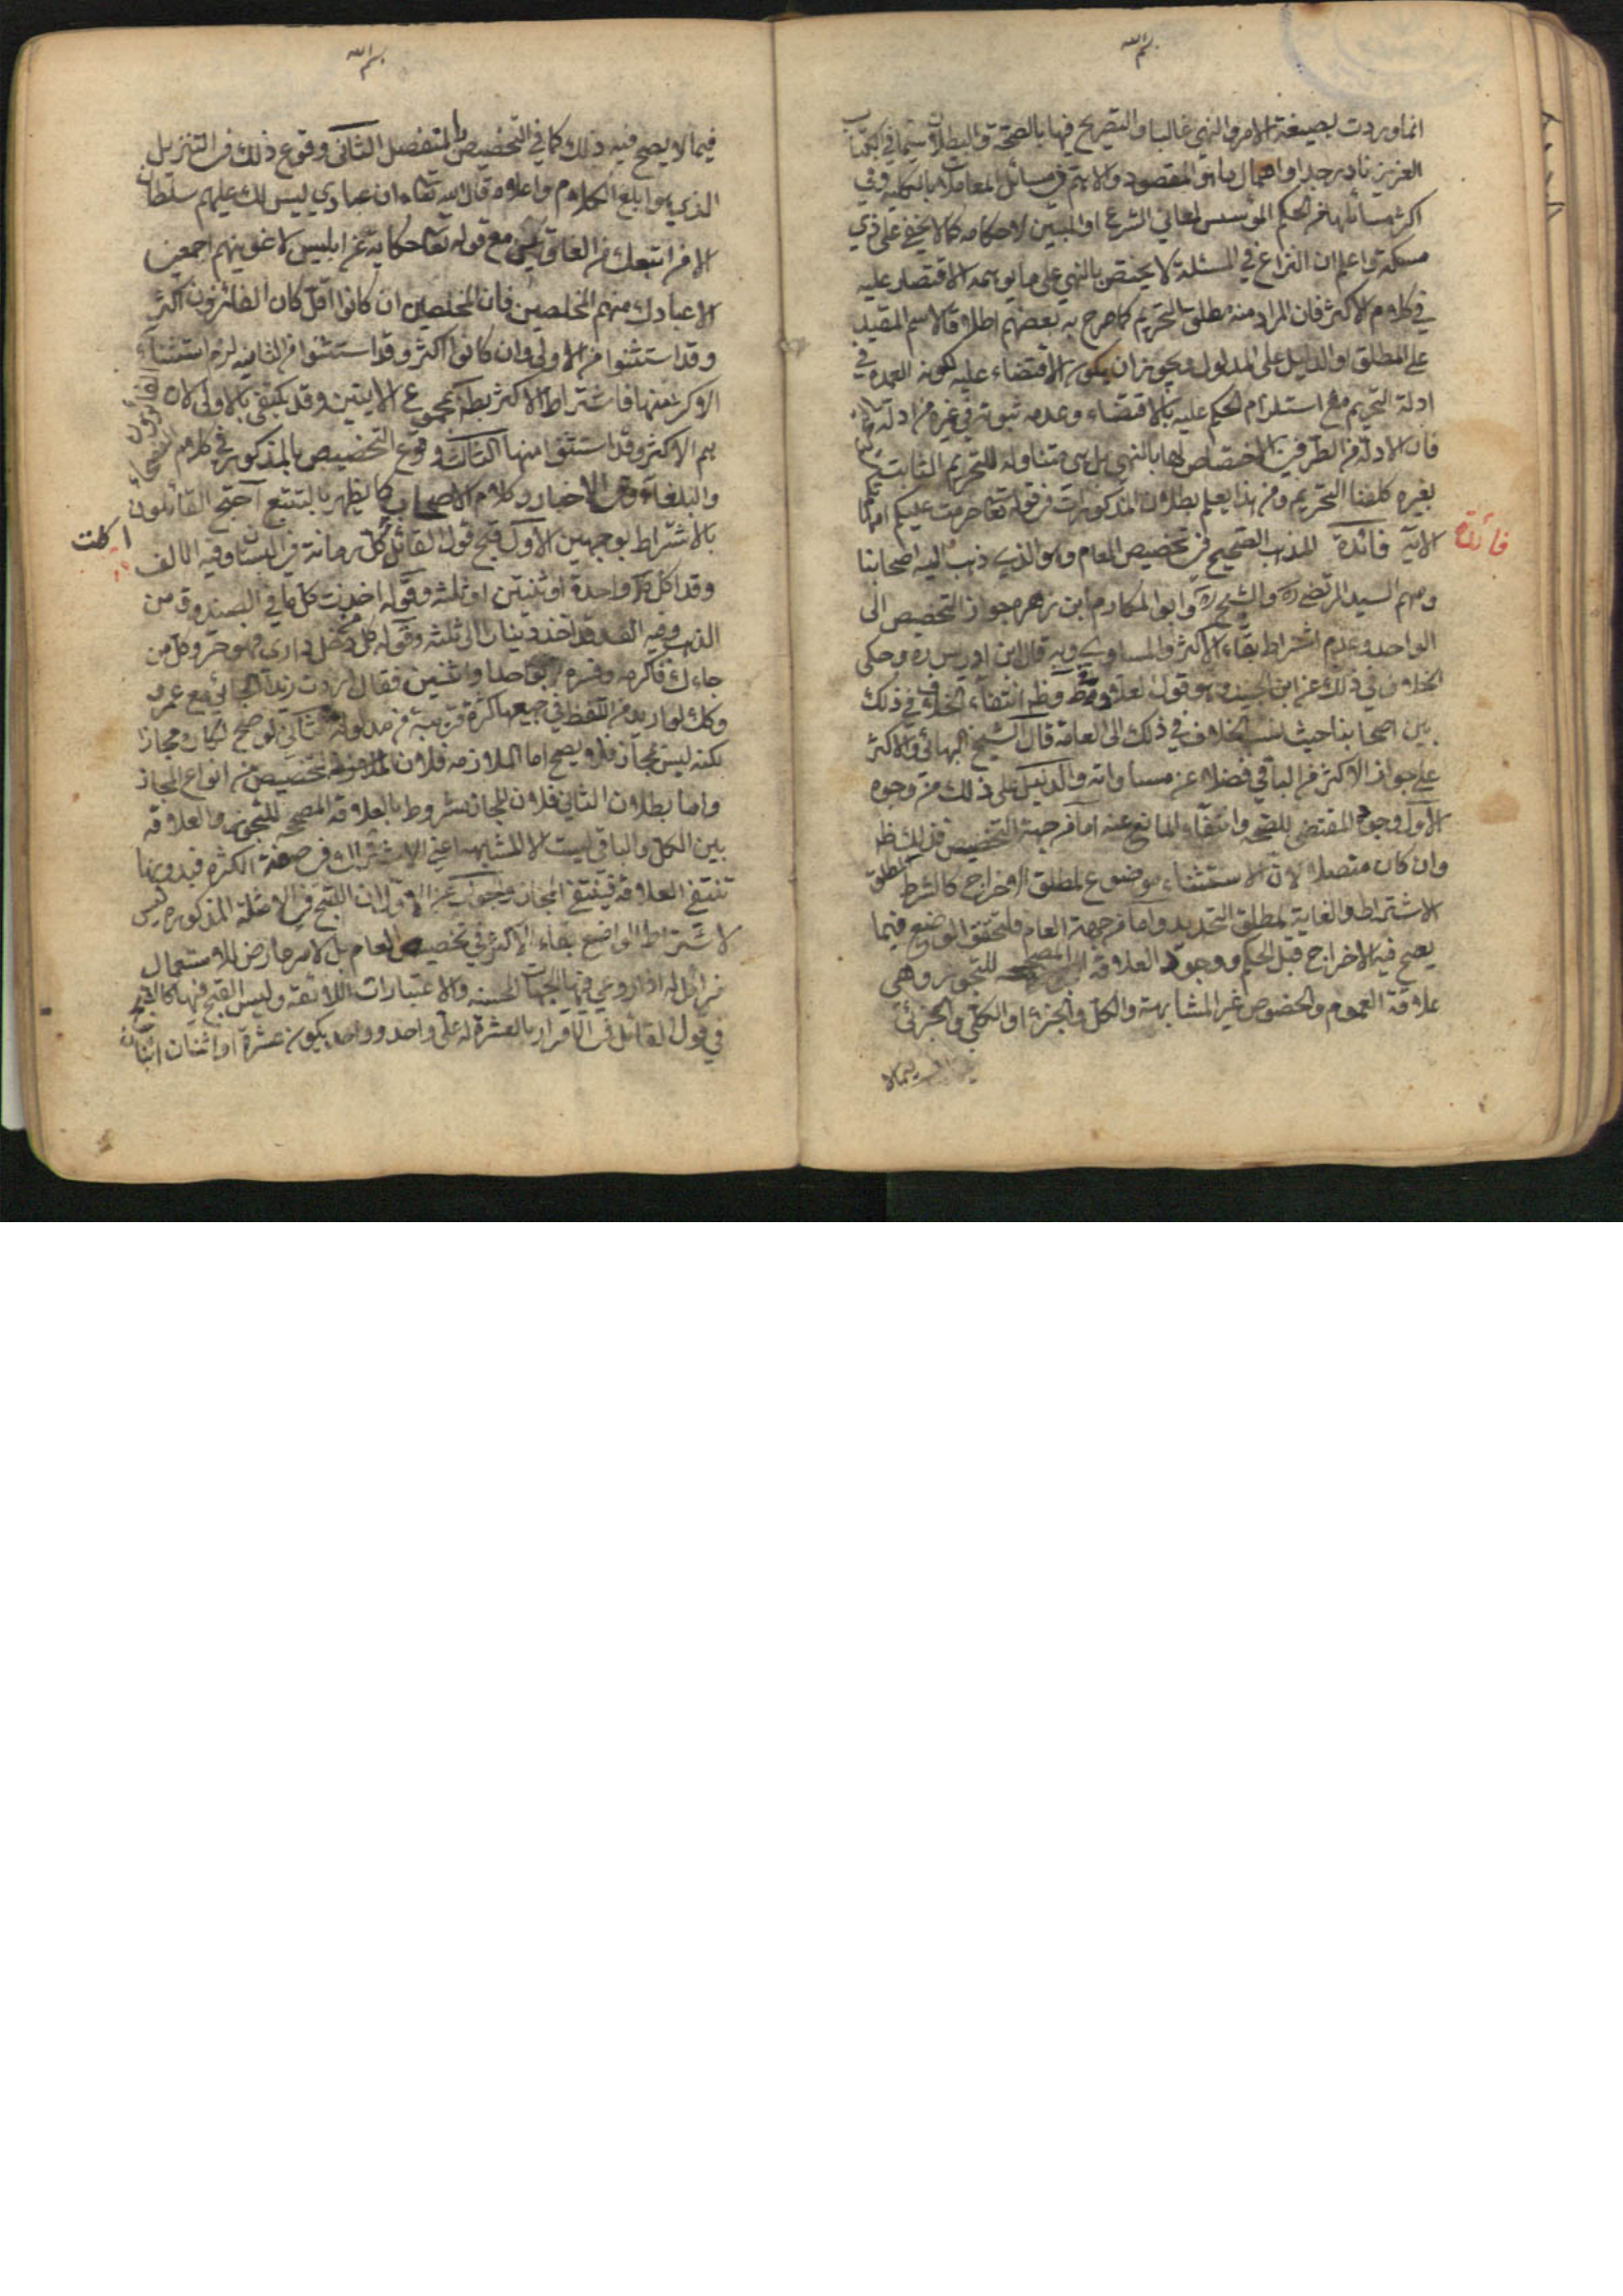 بسم الله
انما وردت بصيغة الامر والنهي غالبا والتصريح فيها بالصحة والبطلان سيما في الكتاب
العزيز نادر جدا واهمال ما هو المقصود والاهتم في مسائل المعاملات بالكلية وفي
اكثر مسائلها من الحكيم المؤسس لمعاني الشرع او المبين لاحكامه كما لا يخفى على ذي
مسكة واعلم ان النزاع في المسئلة لا يختص بالنهي على ما يوهمه الاقتصار عليه
في كلام الاكثر فان المراد منه مطلق التحريم كما صرح به بعضهم اطلاقا لاسم المقيد
على المطلق او الدليل على المدلول ويجوز ان يكون الاقتضاء عليه لكونه العمدة في
ادلة التحريم مع استلزام الحكم عليه بالاقتضاء وعدمه ثبوته في غيره من ادلة
فان الادلة من الطرفين لا اختصاص لها بالنهي بل هي متناوله للتحريم الثابت
بغيره كلفظ التحريم ومن هذا يعلم بطلان المذكورات من قوله تعا حرمت عليكم امهاتكم
الآية فائدة المذهب الصحيح في تخصيص العام وهو الذي ذهب اليه اصحابنا
فائدة
ومنهم السيد المرتضى ره والشيخ ره وابو المكارم ابن زهره جواز التخصيص الى
الواحد وعدم اشتراط بقاء الاكثر والمساوي وبه قال ابن ادريس ره وحكى
الخلاف في ذلك عن ابن الجنيد وهو قول العلامة وظ انتفاء الخلاف في ذلك
بين اصحابنا حيث نسب الخلاف في ذلك الى العامة قال الشيخ البهائي والاكثر
على جواز الاكثر من الباقي فضلا عن مساواته والدليل على ذلك من وجوه
الاول وجود المقتضي للصحة وانتفاء المانع عنه اما من جهة التخصيص فذلك ظ
وان كان متصلا لان الاستثناء موضوع لمطلق الاخراج كالشرط لمطلق
الاشتراط والغاية لمطلق التحديد واما من جهة العام فلتحقق الوضع فيما
يصح فيه الاخراج قبل الحكم ووجود العلاقة المصححه للتجوز وهي
علاقة العموم والخصوص غير المشابهة والكل والجزء او الكلي والجزئي
فيما لا
بسم الله
فيما لا يصح فيه ذلك كما في التخصيص بالمنفصل الثاني وقوع ذلك في التنزيل
الذي هو ابلغ الكلام واعلاه قال الله تعا ان عبادي ليس لك عليهم سلطان
الا من اتبعك من الغاوين مع قوله تعا حكاية عن ابليس لاغوينهم اجمعين
الا عبادك منهم المخلصين فان المخلصين ان كانوا اقل كان الغاوون اكثر
وقد استثنوا من الاولى وان كانوا اكثر وقد استثنوا من الثانيه لزم استثناء
الاكثر منها فاشتراط الاكثر بطل بمجموع الايتين وقد يكتفى بالاولى لان الغاوون
هم الاكثر وقد استثنوا منها الثالث وقوع التخصيص بالمذكور في كلام الفصحاء
والبلغاء وفي الاخبار وكلام الاصحاب كما يظهر بالتتبع احتج القائلون
بالاشتراط بوجهين الاول قبح قول القائل اكلت كل رمانة في البستان وفيه الالف
اكلت
وقد اكل واحدة او ثنتين او ثلثه وقوله اخذت كل ما في الصندوق من
الذهب وفيه الف وقد اخذ دينارا الى ثلثه وقوله كل من دخل داري فهو حر وكل من
جاءك فاكرمه وفسره بواحد او اثنين فقال اردت زيدا الجائي مع عمرو
وكك لو اريد من اللفظ في جميعها كثرة قريبة من مدلوله الثاني لو صح لكان مجازا
لكنه ليس بمجاز فلا يصح اما الملازمه فلان التخصيص من انواع المجاز
واما بطلان الثاني فلان المجاز مشروط بالعلاقة المصححه للتجوز والعلاقة
بين الكل والباقي ليست الا المشابهة اعني الاشتراك في صفة الكثرة فبدونها
تنتفي العلاقة فينتفي المجاز والجواب عن الاول ان القبح في الامثلة المذكوره ليس
لاشتراط الواضع بقاء الاكثر في تخصيص العام بل لامر عارض للاستعمال
زائل اذا روعي فيها الجهات الحسنه والاعتبارات اللائقة وليس القبح فيها كالقبح
في قول القائل في الاقرار بالعشرة له علي واحد وواحد يكون عشرة او اثنان اثنان